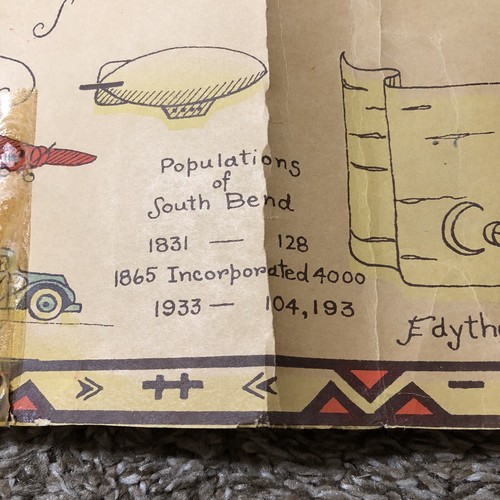 Populations
of
South Bend
1831 — 128
1865 Incorporated 4000
1933 — 104,193